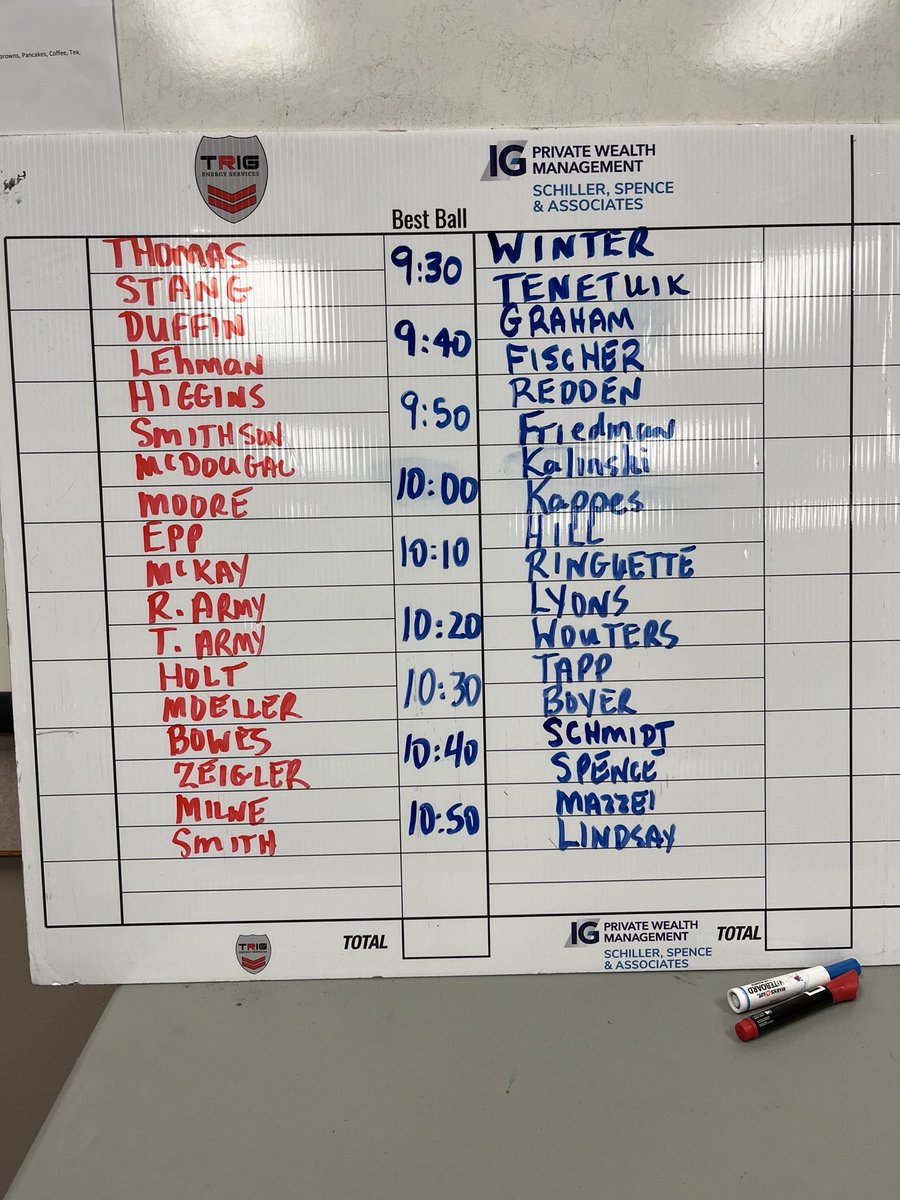 browns, Pancakes, Coffee, Tea,
TRIG
ENERGY SERVICES
IG PRIVATE WEALTH
MANAGEMENT
SCHILLER, SPENCE
& ASSOCIATES
Best Ball
THOMAS 9:30 WINTER
STANG TENETUIK
DUFFIN 9:40 GRAHAM
LEhman FISCHER
HIGGINS 9:50 REDDEN
SMITHSON Friedman
McDOUGAL 10:00 Kalinski
MOORE Kappes
EPP 10:10 HILL
McKAY RINGUETTE
R. ARMY 10:20 LYONS
T. ARMY WOUTERS
HOLT 10:30 TAPP
MOELLER BOYER
BOWES 10:40 SCHMIDT
ZEIGLER SPENCE
MILNE 10:50 MAZZEI
SMITH LINDSAY
TRIG
ENERGY SERVICES
TOTAL
IG PRIVATE WEALTH
MANAGEMENT
SCHILLER, SPENCE
& ASSOCIATES
TOTAL